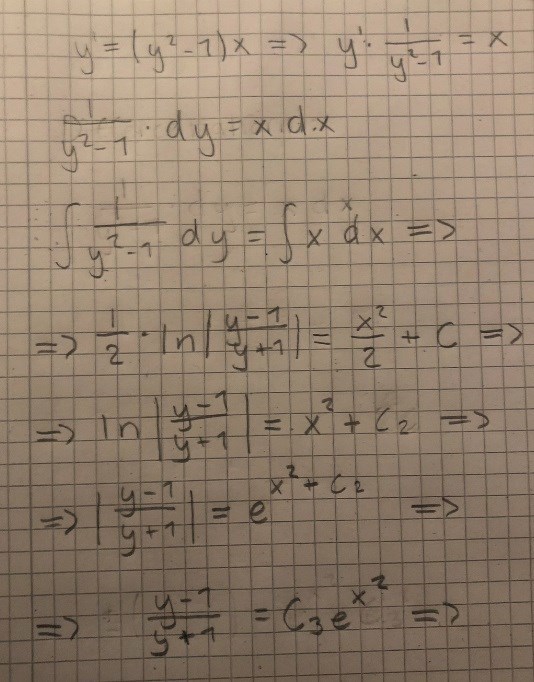 y' = (y² - 1)x => y' · 1/(y²-1) = x
1/(y²-1) · dy = x dx
∫ 1/(y²-1) dy = ∫ x dx =>
=> 1/2 · ln|(y-1)/(y+1)| = x²/2 + C =>
=> ln|(y-1)/(y+1)| = x² + C₂ =>
=> |(y-1)/(y+1)| = e^(x² + C₂) =>
=> (y-1)/(y+1) = C₃e^(x²) =>